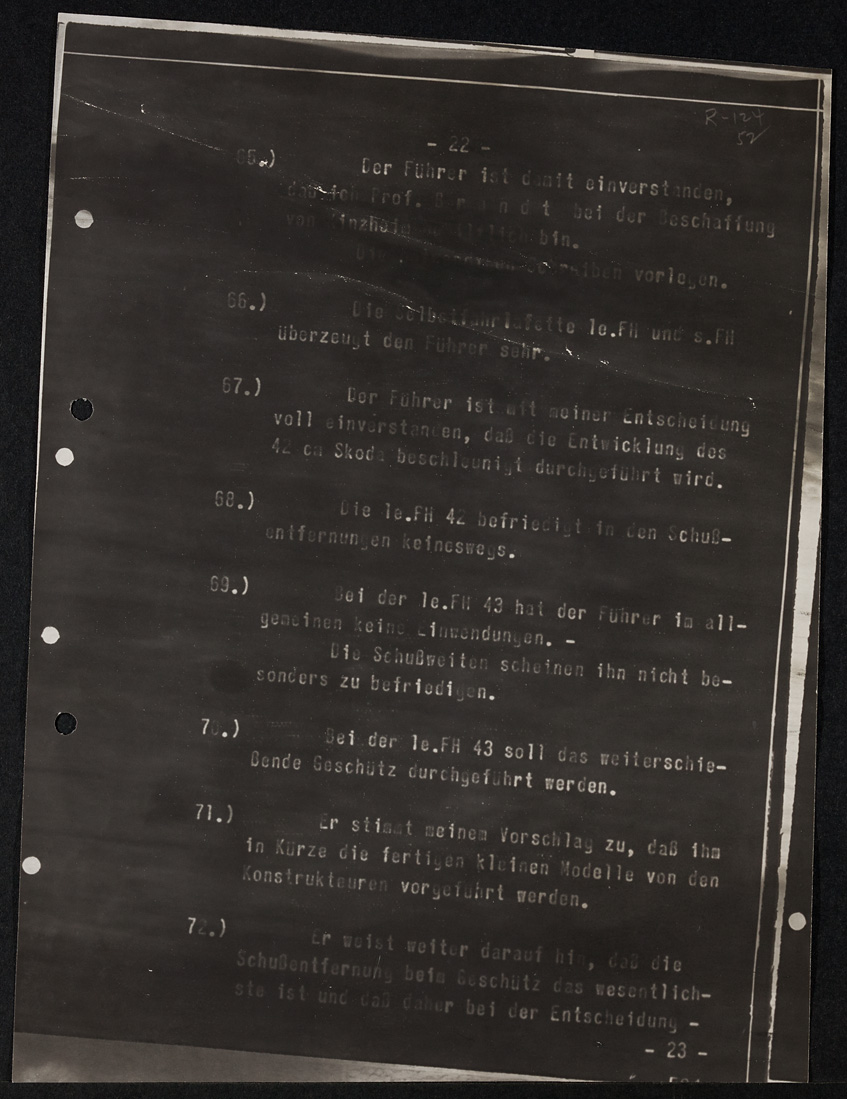 R-124
52
- 22 -
65.) Der Führer ist damit einverstanden,
daß ich Prof. bei der Beschaffung
von bin.
vorlegen.
66.) Die Selbstfahrlafette le.FH und s.FH
überzeugt den Führer sehr.
67.) Der Führer ist mit meiner Entscheidung
voll einverstanden, daß die Entwicklung des
42 cm Skoda beschleunigt durchgeführt wird.
68.) Die le.FH 42 befriedigt in den Schuß-
entfernungen keineswegs.
69.) Bei der le.FH 43 hat der Führer im all-
gemeinen keine Einwendungen. -
Die Schußweiten scheinen ihn nicht be-
sonders zu befriedigen.
70.) Bei der le.FH 43 soll das weiterschie-
ßende Geschütz durchgeführt werden.
71.) Er stimmt meinem Vorschlag zu, daß ihm
in Kürze die fertigen kleinen Modelle von den
Konstrukteuren vorgeführt werden.
72.) Er weist weiter darauf hin, daß die
Schußentfernung beim Geschütz das wesentlich-
ste ist und daß daher bei der Entscheidung -
- 23 -